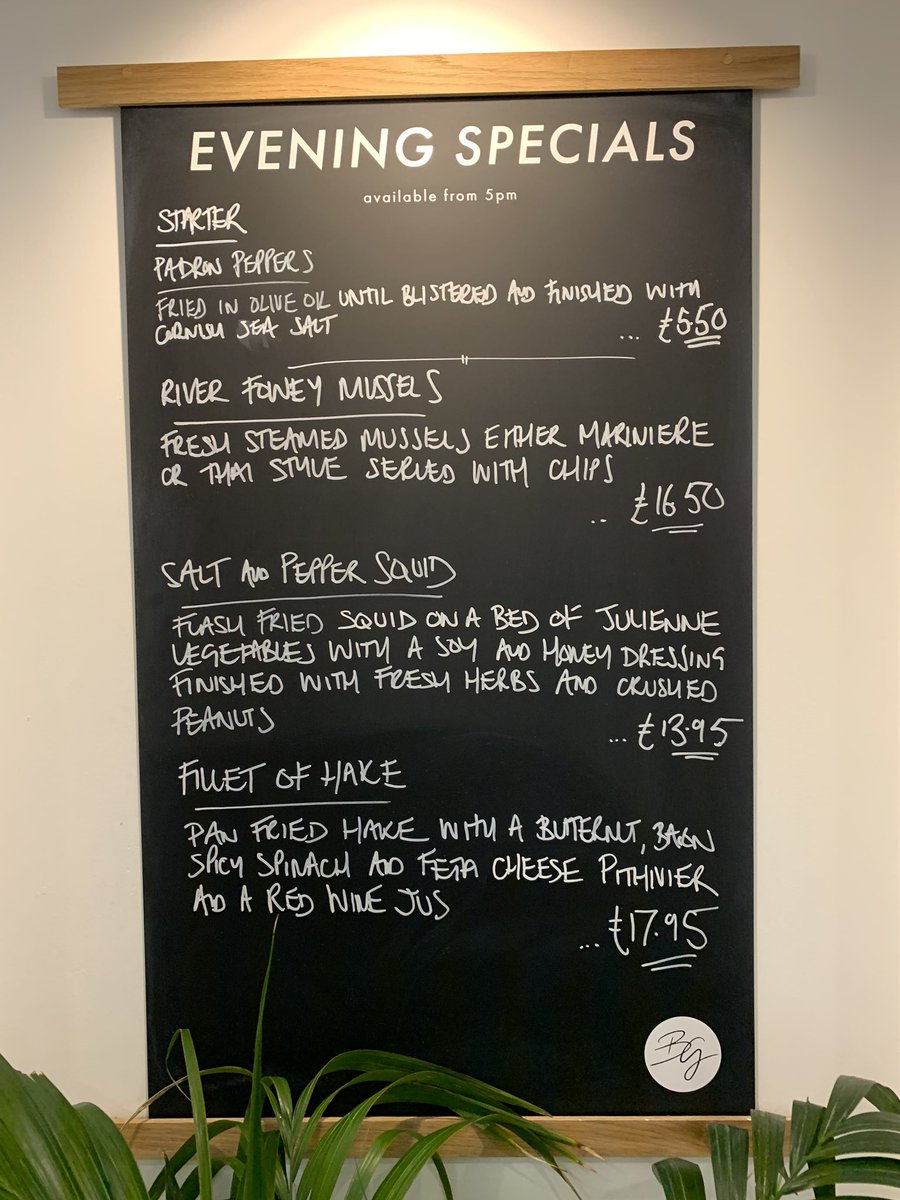 EVENING SPECIALS
available from 5pm
STARTER
PADRON PEPPERS
FRIED IN OLIVE OIL UNTIL BLISTERED AND FINISHED WITH
CORNISH SEA SALT
... £5.50
RIVER FOWEY MUSSELS
FRESH STEAMED MUSSELS EITHER MARINIERE
OR THAI STYLE SERVED WITH CHIPS
.. £16.50
SALT AND PEPPER SQUID
FLASH FRIED SQUID ON A BED OF JULIENNE
VEGETABLES WITH A SOY AND HONEY DRESSING
FINISHED WITH FRESH HERBS AND CRUSHED
PEANUTS
... £13.95
FILLET OF HAKE
PAN FRIED HAKE WITH A BUTERNUT, BACON
SPICY SPINACH AND FETA CHEESE PITHIVIER
AND A RED WINE JUS
... £17.95
BG